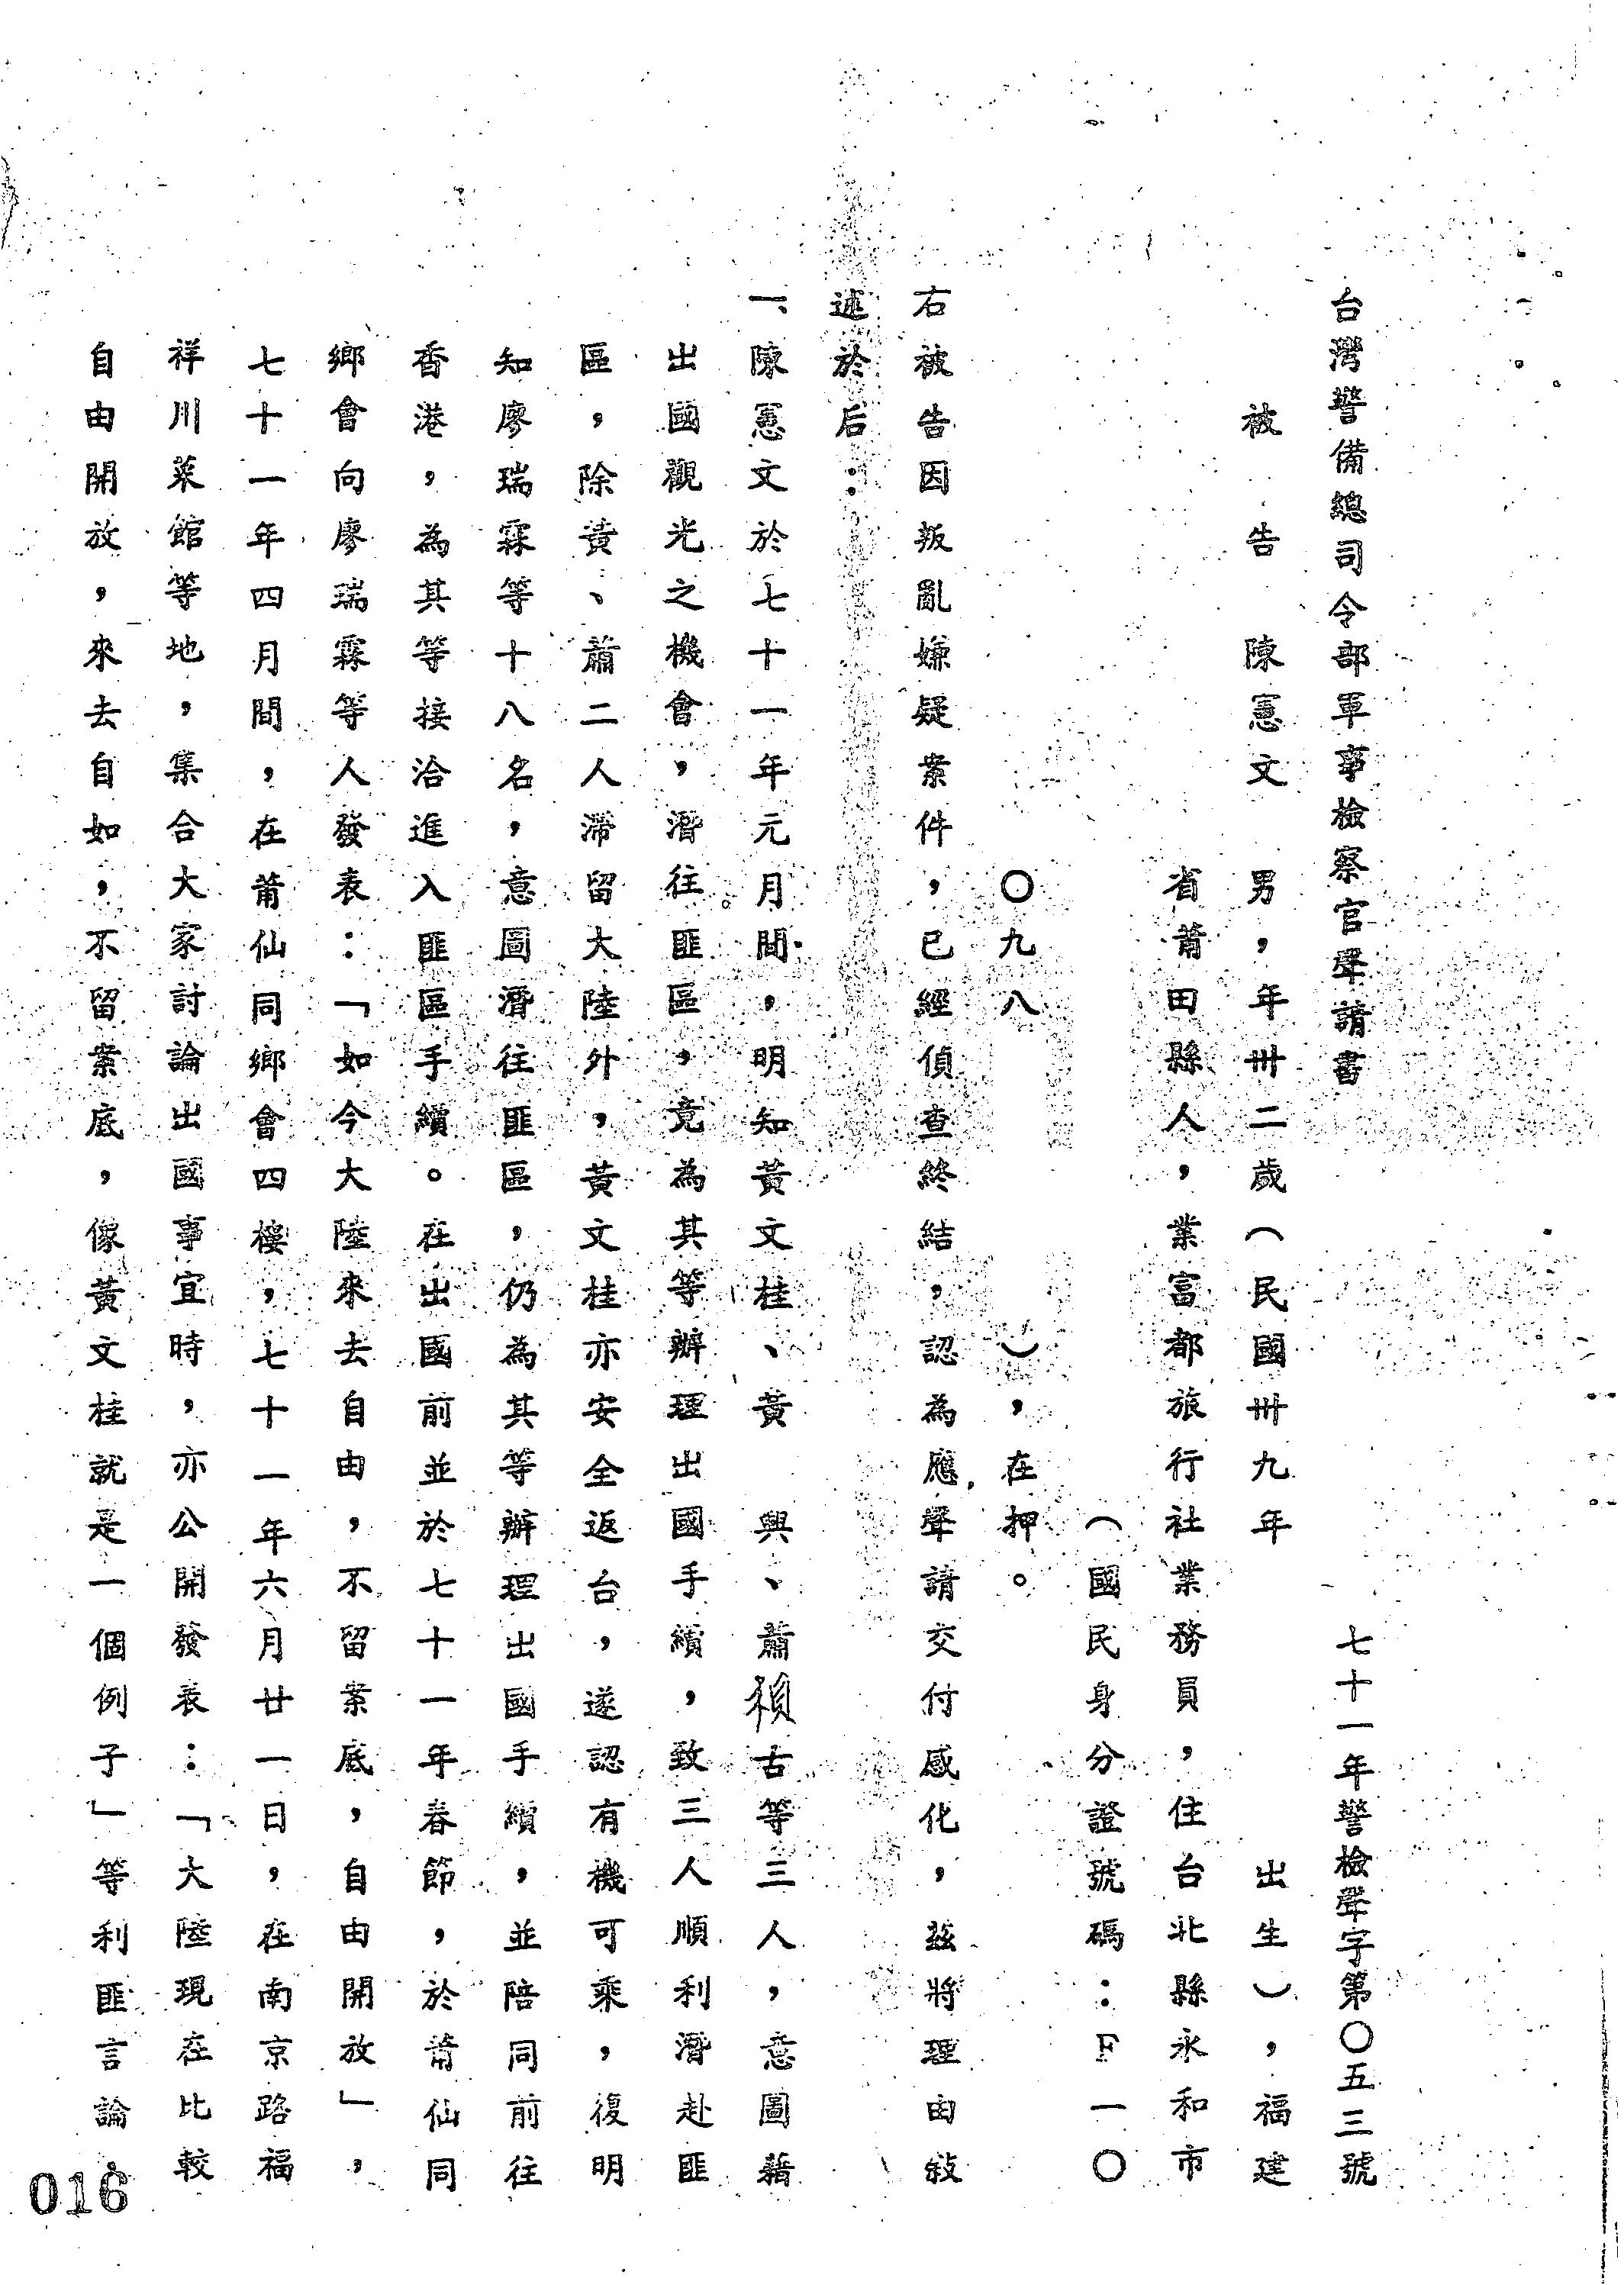 台灣警備總司令部軍事檢察官聲請書　七十一年警檢聲字第〇五三號
被告　陳憲文　男，年卅二歲（民國卅九年　出生），福建
省莆田縣人，業富都旅行社業務員，住台北縣永和市
（國民身分證號碼：F一〇
〇九八　），在押。
右被告因叛亂嫌疑案件，已經偵查終結，認為應聲請交付感化，茲將理由敍
述於后：
一、陳憲文於七十一年元月間，明知黃文桂、黃　興、蕭禎古等三人，意圖藉
出國觀光之機會，潛往匪區，竟為其等辦理出國手續，致三人順利潛赴匪
區，除黃、蕭二人滯留大陸外，黃文桂亦安全返台，遂認有機可乘，復明
知廖瑞霖等十八名，意圖潛往匪區，仍為其等辦理出國手續，並陪同前往
香港，為其等接洽進入匪區手續。在出國前並於七十一年春節，於莆仙同
鄉會向廖瑞霖等人發表：「如今大陸來去自由，不留案底，自由開放」，
七十一年四月間，在莆仙同鄉會四樓，七十一年六月廿一日，在南京路福
祥川菜館等地，集合大家討論出國事宜時，亦公開發表：「大陸現在比較
自由開放，來去自如，不留案底，像黃文桂就是一個例子」等利匪言論，
016